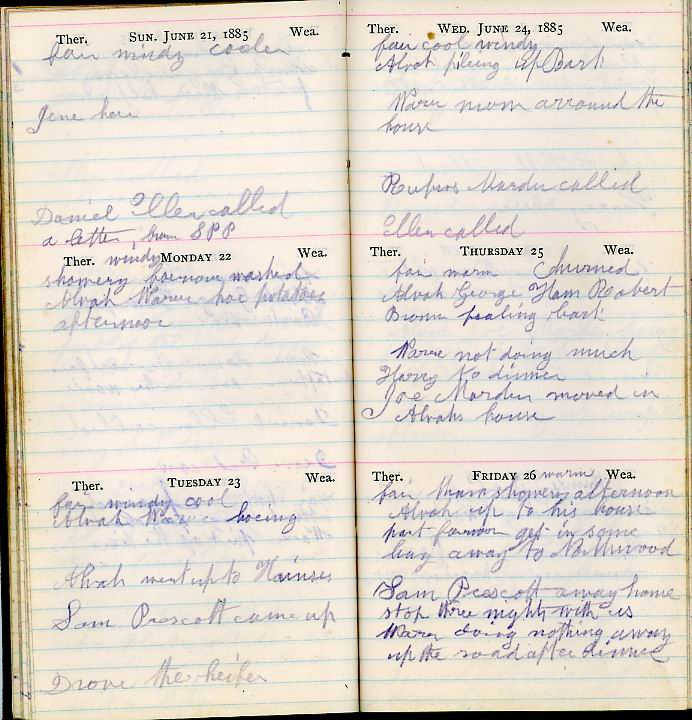 Ther. SUN. JUNE 21, 1885 Wea.
fair windy cooler
Jene here
Daniel Ellen called
a letter from SPP
Ther. MONDAY 22 Wea.
windy
showery forenoon washed
Alvah Warren hoe potatoes
afternoon
Ther. TUESDAY 23 Wea.
fair windy cool
Alvah Warren hoeing
Alvah went up to Haineses
Sam Prescott came up
Drove the heifer
Ther. WED. JUNE 24, 1885 Wea.
fair cool windy
Alvah pileing up Bark
Warren mom arround the
house
Rufus Marden called
Ellen called
Ther. THURSDAY 25 Wea.
fair warm Churned
Alvah George Ham Robert
Brown pealing bark
Warren not doing much
Harry to dinner
Joe Marden moved in
Alvahs house
Ther. FRIDAY 26 Wea.
warm
fair showers afternoon
Alvah up to his house
part forenoon get in some
hay away to Northwood
Sam Prescott away home
stop three nights with us
Warren doing nothing away
up the road after dinner